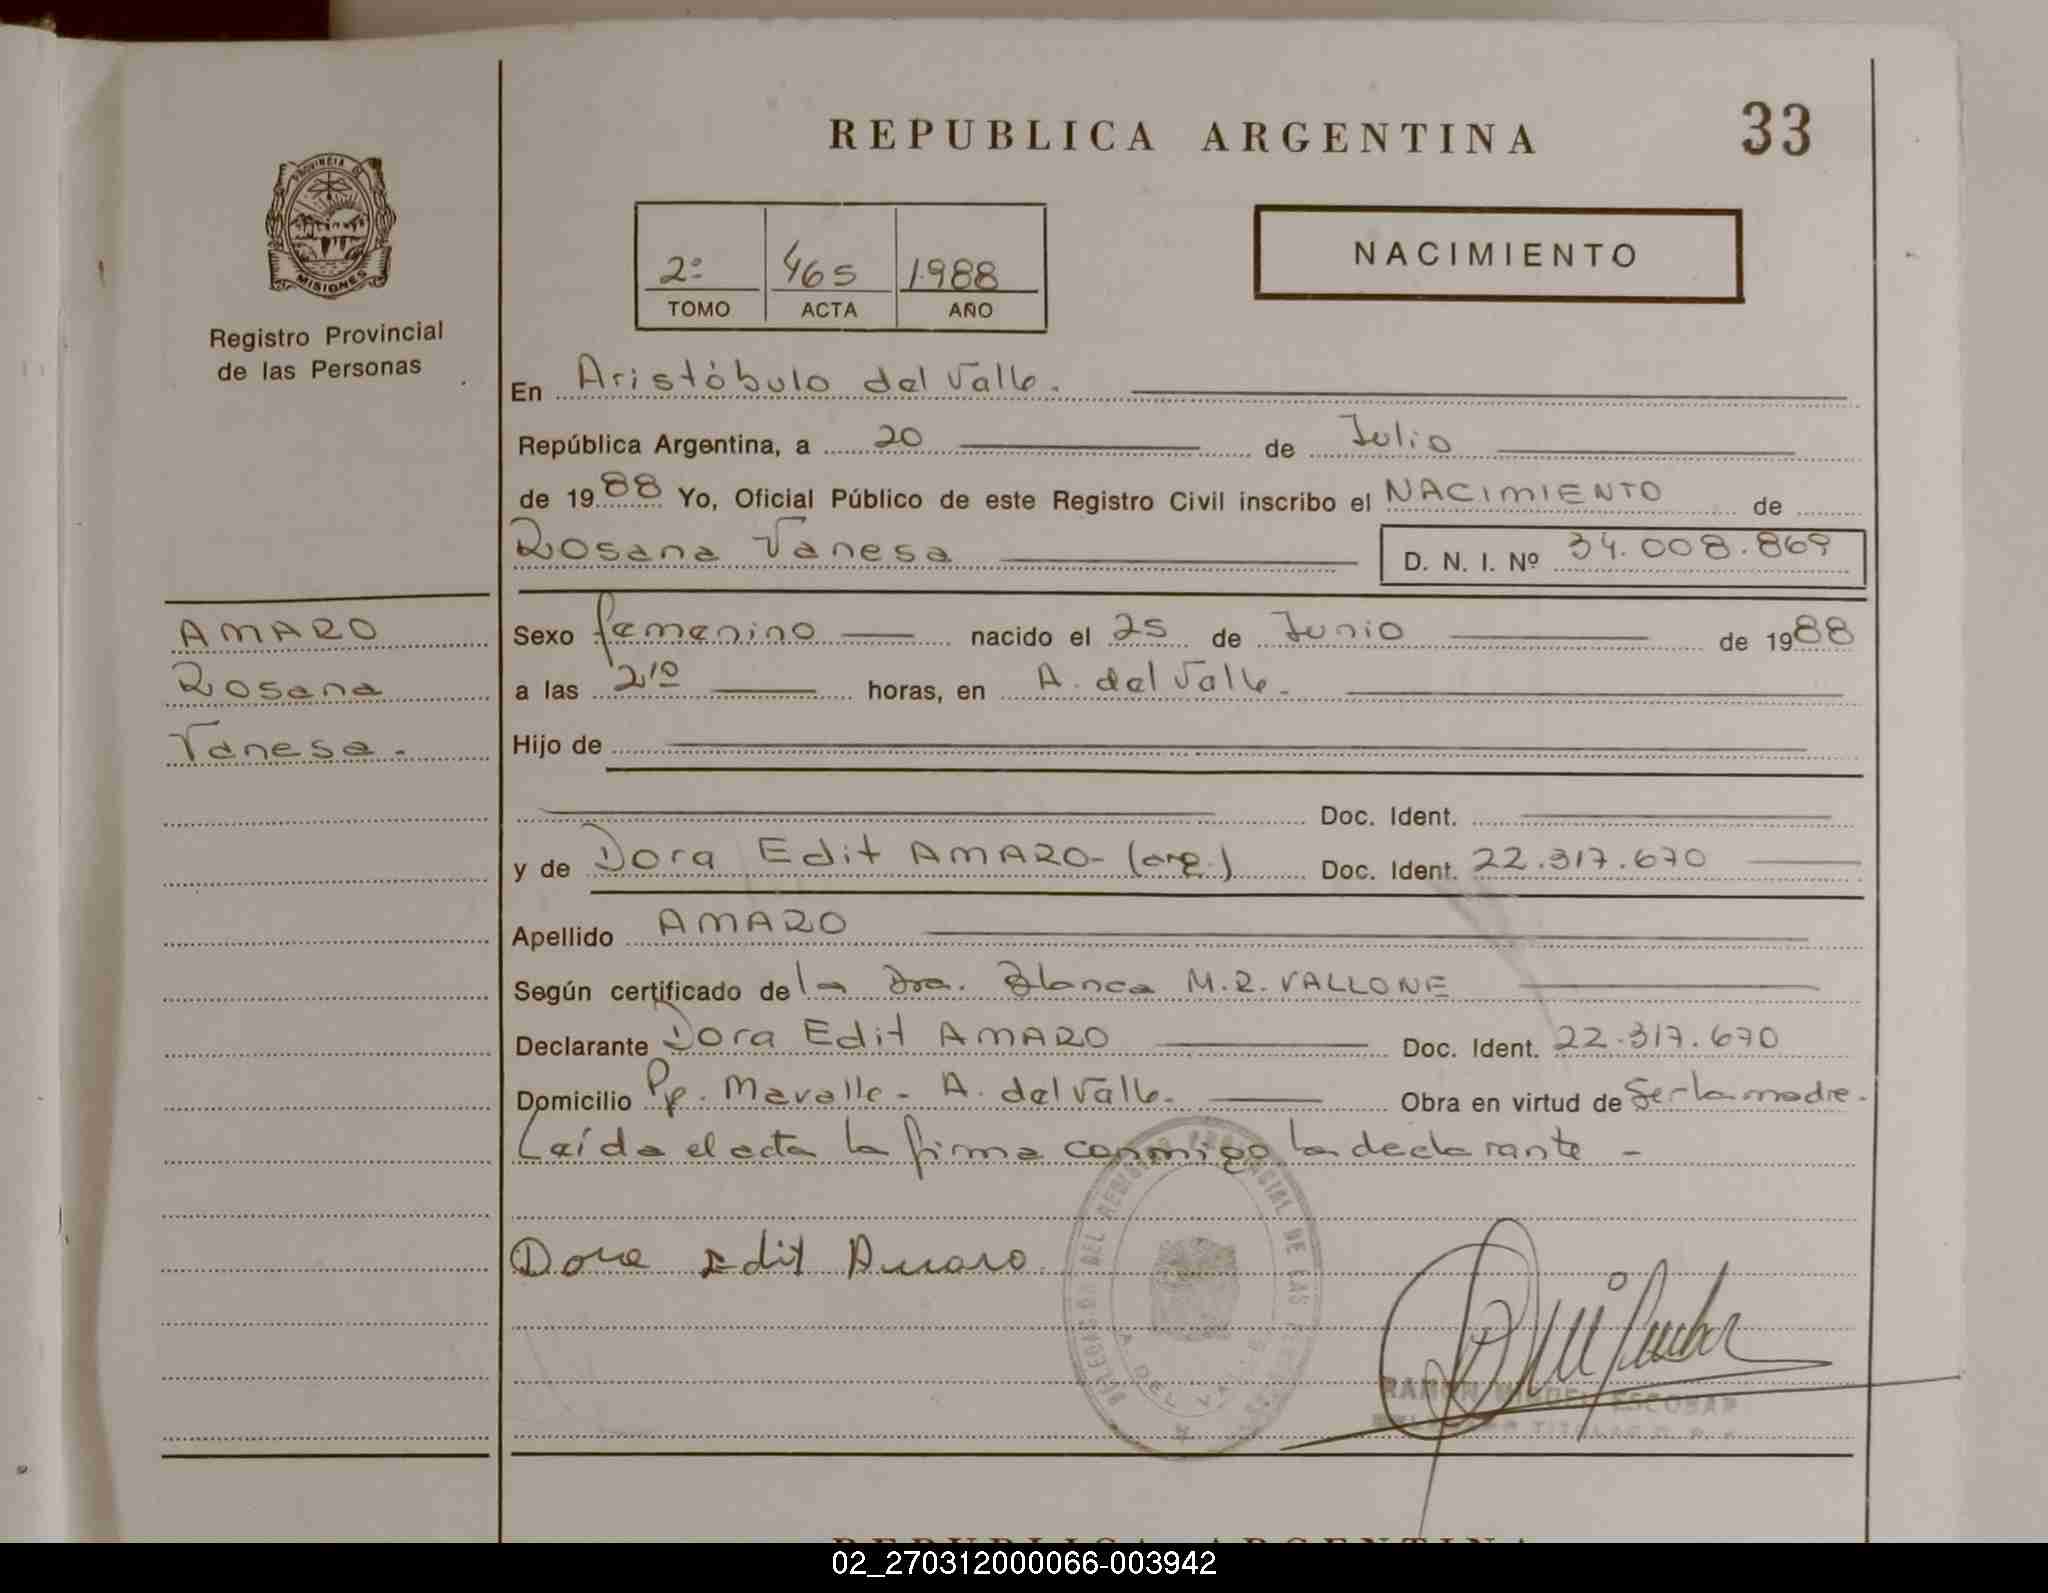 REPUBLICA ARGENTINA
33
PROVINCIA DE
MISIONES
Registro Provincial
de las Personas
2º 465 1988
TOMO ACTA AÑO
NACIMIENTO
En Aristóbulo del Valle.
República Argentina, a 20 de Julio
de 1988 Yo, Oficial Público de este Registro Civil inscribo el NACIMIENTO de
Rosana Vanesa D. N. I. Nº 34.008.869
AMARO
Rosana
Vanesa.
Sexo femenino nacido el 25 de Junio de 1988
a las 2,10 horas, en A. del Valle.
Hijo de
Doc. Ident.
y de Dora Edit AMARO- (arg.) Doc. Ident. 22.317.670
Apellido AMARO
Según certificado de la Dra. Blanca M.R. VALLONE
Declarante Dora Edit AMARO Doc. Ident. 22.317.670
Domicilio Pje. Mavalle - A. del Valle. Obra en virtud de Ser la madre.
Leída el acta la firma conmigo la declarante -
Dora Edit Amaro
DELEGACION DEL REGISTRO PROVINCIAL DE LAS
A DEL VALLE
RAMON MIGUEL ESCOBAR
TITULAR
REPUBLICA ARGENTINA
02_270312000066-003942